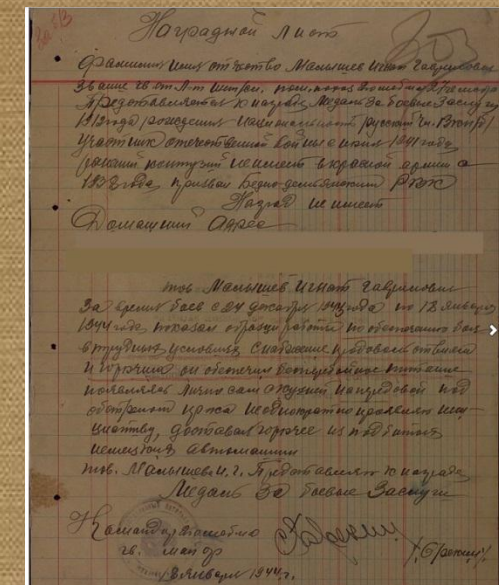 Наградной лист
Фамилия имя отчество Малышев Игнат Гаврилович
Звание гв. ст. л-т
Представляется к награде Медаль За боевые Заслуги
1912 года рождения национальность русский чл. ВКП(б)
участник отечественной войны с июня 1941 года
ранений контузий не имеет в красной армии с
1938 года, призван РВК
Наград не имеет
Домашний Адрес
тов. Малышев Игнат Гаврилович
За время боев с 24 декабря 1943 года по 12 января
1944 года показал образцы работы по обеспечению боя
в трудных условиях снабжение продовольствием
и горючим он обеспечил бесперебойное питание
лично сам на передовой под
обстрелом неоднократно проявлял ини
циативу, доставал горючее из подбитых
немецких автомашин
тов. Малышев И. Г. Представляется к награде
Медаль За боевые Заслуги
Командир
гв. майор
января 1944 г.